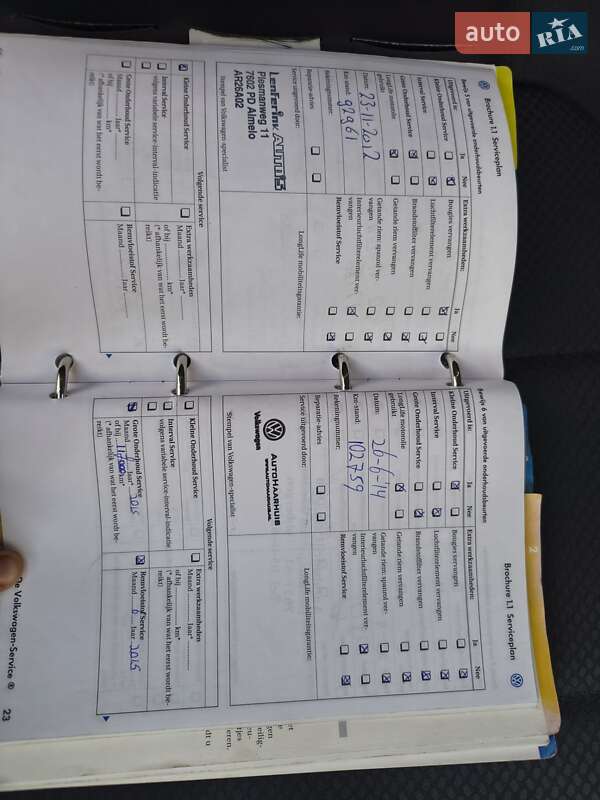 auto RIA .com
Brochure 1.1 Serviceplan
Bewijs 5 van uitgevoerde onderhoudsbeurten
Uitgevoerd is: Ja Nee
Kleine Onderhoud Service
Interval Service
Grote Onderhoud Service
LongLife motorolie
gebruikt
Datum: 23-11-2012
Km-stand: 92961
Rekeningnummer:
Reparatie-advies
Service uitgevoerd door:
Lenferink AUTO'S
Plesmanweg 11
7602 PD Almelo
AR26A02
Stempel van Volkswagen-specialist
Extra werkzaamheden: Ja Nee
Bougies vervangen
Luchtfilterelement vervangen
Brandstoffilter vervangen
Getande riem vervangen
Getande riem: spanrol ver-
vangen
Interieurluchtfilterelement ver-
vangen
Remvloeistof Service
LongLife mobiliteitsgarantie:
Volgende service
Kleine Onderhoud Service
Interval Service
volgens variabele service-interval-indicatie
Grote Onderhoud Service
Maand Jaar*
of bij km*
(* afhankelijk van wat het eerst wordt be-
reikt)
Extra werkzaamheden
Maand Jaar*
of bij km*
(* afhankelijk van wat het eerst wordt be-
reikt)
Remvloeistof Service
Maand Jaar
Bewijs 6 van uitgevoerde onderhoudsbeurten
Uitgevoerd is: Ja Nee
Kleine Onderhoud Service
Interval Service
Grote Onderhoud Service
LongLife motorolie
gebruikt
Datum: 26-6-14
Km-stand: 102759
Rekeningnummer:
Reparatie-advies
Service uitgevoerd door:
Volkswagen
AUTOHAARHUIS
WWW.AUTOHAARHUIS.NL
Stempel van Volkswagen-specialist
Brochure 1.1 Serviceplan
Extra werkzaamheden: Ja Nee
Bougies vervangen
Luchtfilterelement vervangen
Brandstoffilter vervangen
Getande riem vervangen
Getande riem: spanrol ver-
vangen
Interieurluchtfilterelement ver-
vangen
Remvloeistof Service
LongLife mobiliteitsgarantie:
Volgende service
Kleine Onderhoud Service
Interval Service
volgens variabele service-interval-indicatie
Grote Onderhoud Service
Maand Jaar 2015
of bij km*
(* afhankelijk van wat het eerst wordt be-
reikt)
Extra werkzaamheden
Maand Jaar*
of bij km*
(* afhankelijk van wat het eerst wordt be-
reikt)
Remvloeistof Service
Maand 6 Jaar 2015
De Volkswagen-Service ® 23
2